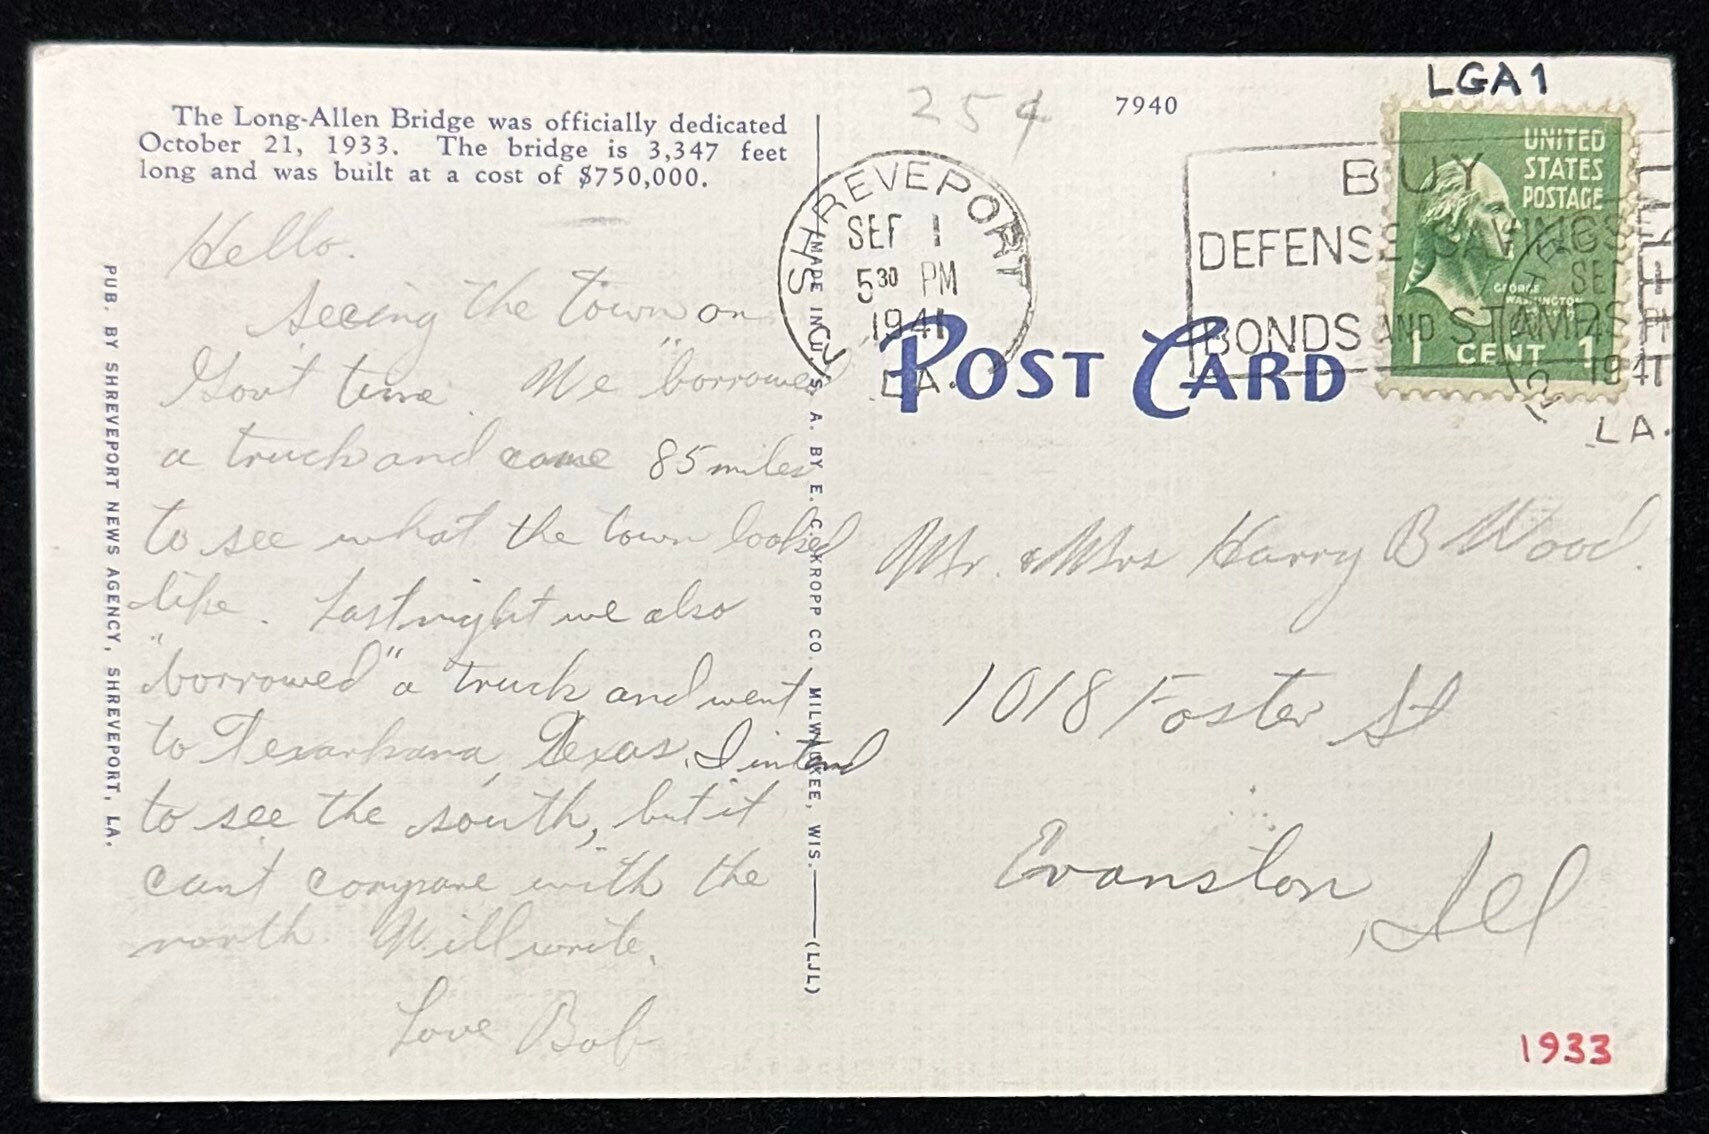 The Long-Allen Bridge was officially dedicated
October 21, 1933. The bridge is 3,347 feet
long and was built at a cost of $750,000.
Hello.
Seeing the town on
Gov't time. We "borrowed"
a truck and came 85 miles
to see what the town looked
like. Last night we also
"borrowed" a truck and went
to Texarkana, Texas. I intend
to see the south, but it
can't compare with the
north. Will write.
Love Bob
PUB. BY SHREVEPORT NEWS AGENCY, SHREVEPORT, LA.
MADE IN U. S. A. BY E. C. KROPP CO. MILWAUKEE, WIS. (LJL)
25¢
7940
LGA1
SHREVEPORT
SEP 1
5 30 PM
1941
LA.
BUY
DEFENSE SAVINGS
BONDS AND STAMPS
UNITED
STATES
POSTAGE
GEORGE
WASHINGTON
1 CENT 1
SEP
1941
LA.
POST CARD
Mr. & Mrs Harry B Wood.
1018 Foster St
Evanston, Ill
1933